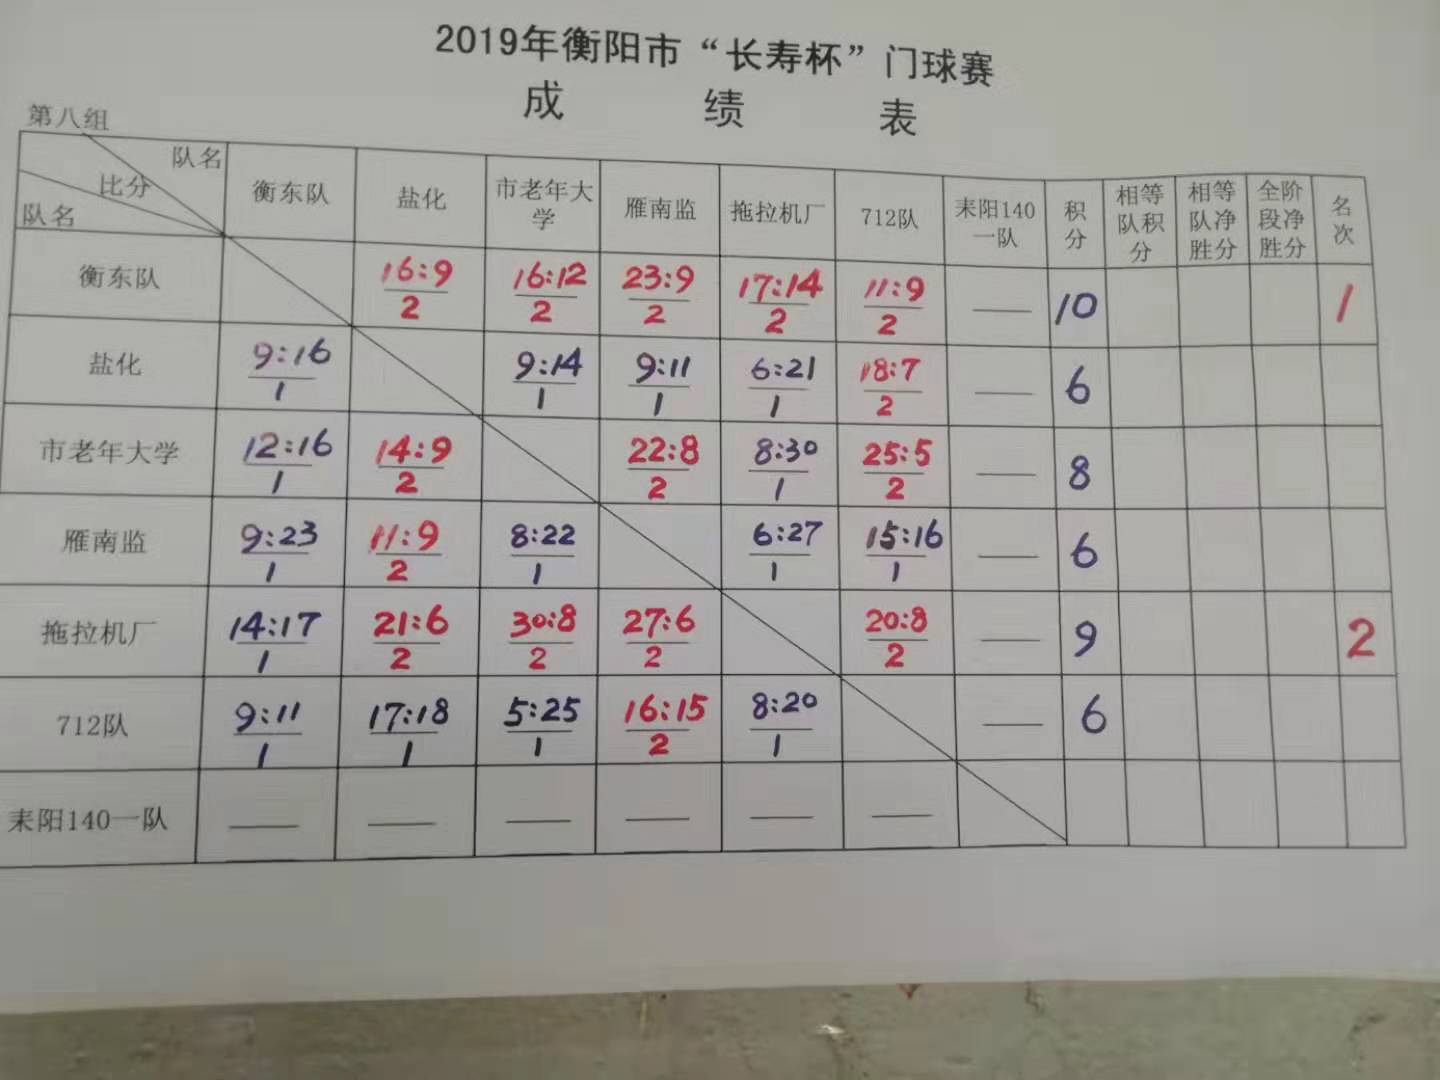 2019年衡阳市“长寿杯”门球赛
成 绩 表
第八组
队名 比分 队名 衡东队 盐化 市老年大学 雁南监 拖拉机厂 712队 耒阳140一队 积分 相等队积分 相等队净胜分 全阶段净胜分 名次
衡东队 16:9 16:12 23:9 17:14 11:9 — 10 1
2 2 2 2 2
盐化 9:16 9:14 9:11 6:21 18:7 — 6
1 1 1 1 2
市老年大学 12:16 14:9 22:8 8:30 25:5 — 8
1 2 2 1 2
雁南监 9:23 11:9 8:22 6:27 15:16 — 6
1 2 1 1 1
拖拉机厂 14:17 21:6 30:8 27:6 20:8 — 9 2
1 2 2 2 2
712队 9:11 17:18 5:25 16:15 8:20 — 6
1 1 1 2 1
耒阳140一队 — — — — — —